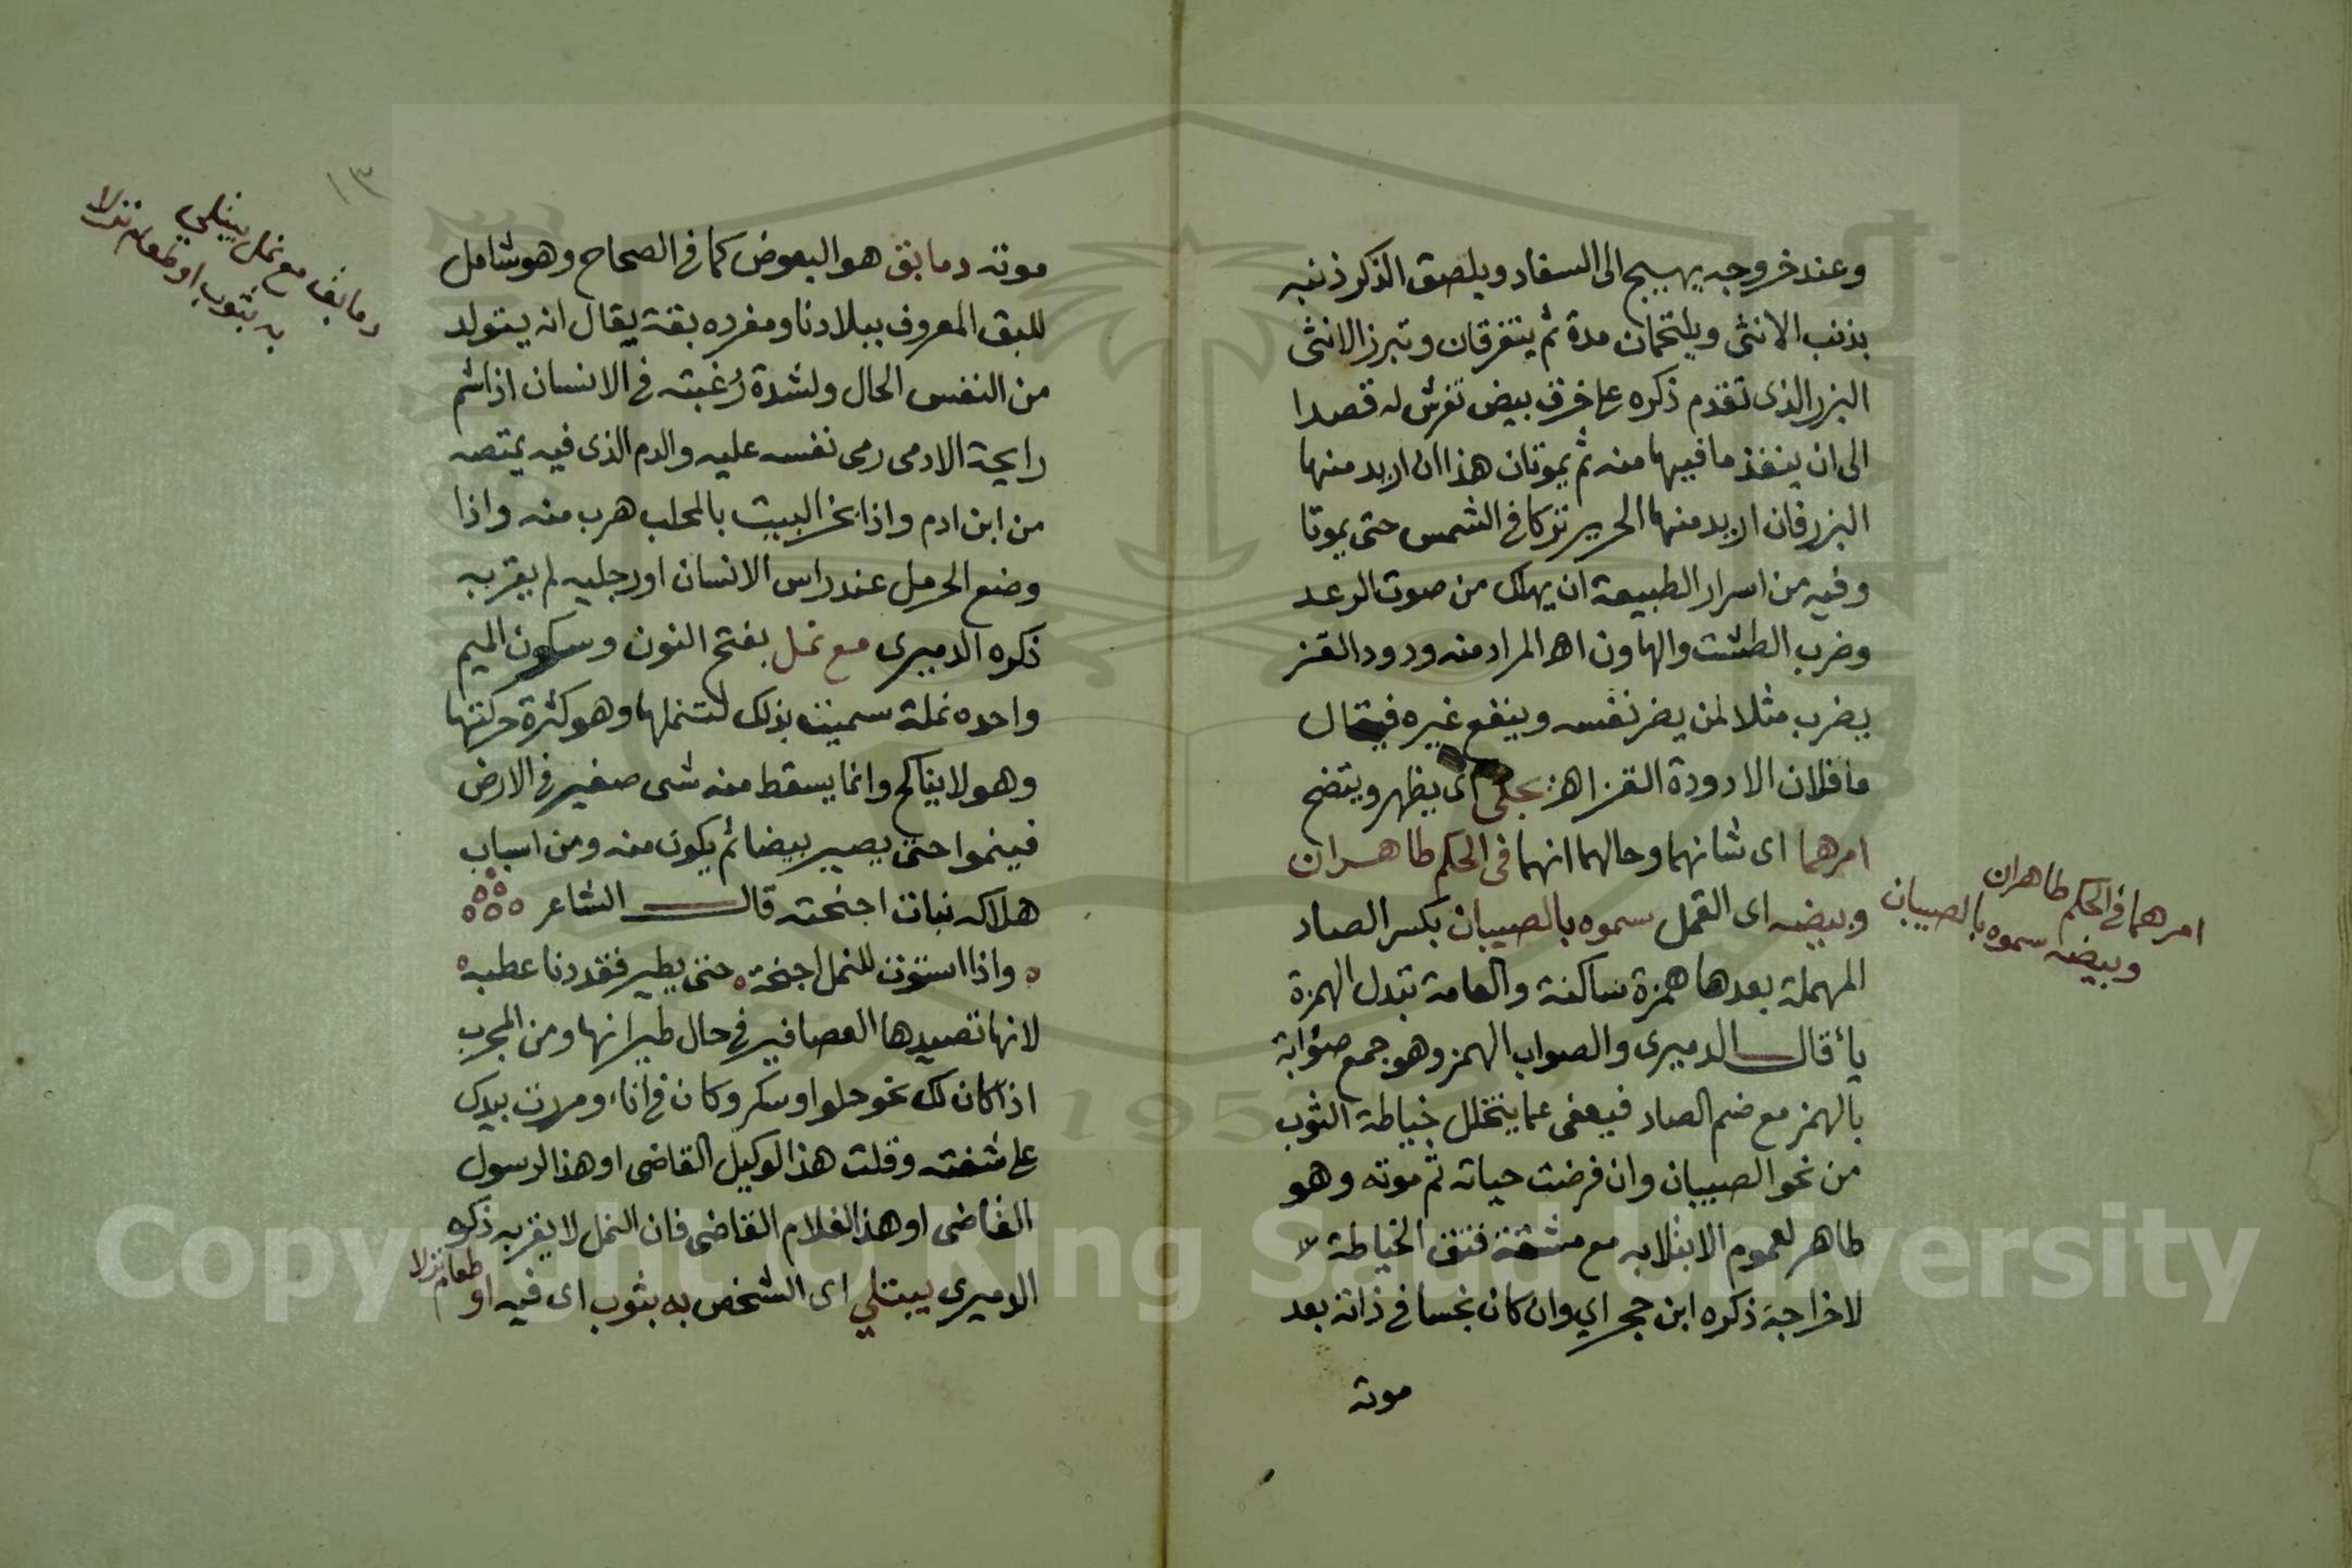 وعند خروجه يهيج الى السفاد ويلصق الذكر ذنبه
بذنب الانثى ويلتحمان مدة ثم يتفرقان وتبرز الانثى
البزر الذى تقدم ذكره على خرق بيض تفرش له قصدا
الى ان ينفذ ما فيهما منه ثم يموتان هذا ان اريد منهما
البزر فان اريد منهما الحرير تركا فى الشمس حتى يموتا
وفيه من اسرار الطبيعة ان يهلك من صوت الرعد
وضرب الطشت والهاون اهـ المراد منه ودود القز
يضرب مثلا لمن يضر نفسه وينفع غيره فيقال
ما فلان الا دودة القز اهـ يجلى اى يظهر ويتضح
امرهما اى شانهما وحالهما انهما فى الحكم طاهران
وبيضه اى القمل سموه بالصيبان بكسر الصاد
المهملة بعدها همزة ساكنة والعامة تبدل الهمزة
ياء قال الدميرى والصواب الهمز وهو جمع صؤابة
بالهمز مع ضم الصاد فيعفى عما يتخلل خياطة الثوب
من نحو الصيبان وان فرضت حياته ثم موته وهو
طاهر لعموم الابتلا به مع مشقة فتق الخياطة لا
لاخراجه ذكره ابن حجر اي وان كان نجسا فى ذاته بعد
موته
امرهما فى الحكم طاهران
وبيضه سموه بالصيبان
١٣
موته دما بق هو البعوض كما فى الصحاح وهو شامل
للبق المعروف ببلادنا ومفرده بقة يقال انه يتولد
من النفس الحال ولشدة رغبته فى الانسان اذا شم
رايحة الادمى رمى نفسه عليه والدم الذى فيه يمتصه
من ابن ادم واذا بخر البيت بالمحلب هرب منه واذا
وضع الحرمل عند راس الانسان او رجليه لم يقربه
ذكره الدميرى مع نمل بفتح النون وسكون الميم
واحده نملة سميت بذلك لتنملها وهو كثرة حركتها
وهو لا يناكح وانما يسقط منه شى صغير فى الارض
فينموا حتى يصير بيضا ثم يكون منه ومن اسباب
هلاكه نبات اجنحته قال الشاعر
واذا استوت للنمل اجنحة حتى يطير فقد دنا عطبه
لانها تصيدها العصافير فى حال طيرانها ومن المجرب
اذا كان لك نحو حلوا وسكر وكان فى اناء ومررت بيدك
على شفته وقلت هذا لوكيل القاضى او هذا لرسول
القاضى او هذا لغلام القاضى فان النمل لا يقربه ذكره
الدميرى يبتلي اى الشخص به بثوب اى فيه او طعام نزلا
دما بق مع نمل يبتلي
به بثوب او طعام نزلا
Copyright © King Saud University
195